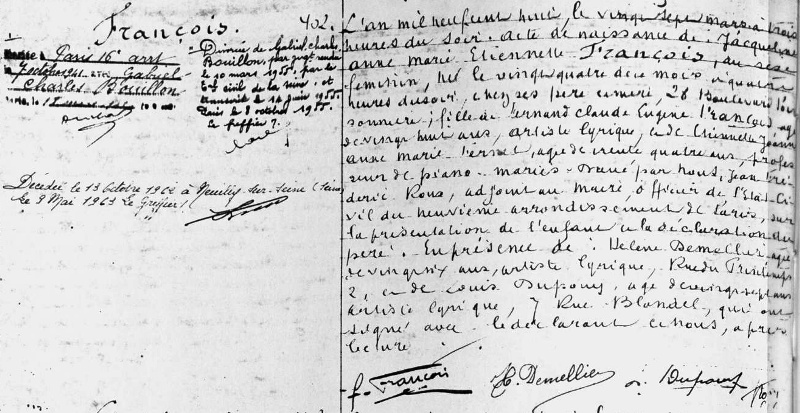 François.
402.
Mariée à Paris 16e arrt
7 octobre 1941
Gabriel
Charles Bouillon
Divorcée de Gabriel, Charles
Bouillon, par jugt rendu
le 30 mars 1955, par le
Tal civil de la Seine, et
transcrit le 14 juin 1955.
Paris le 8 octobre 1955.
Le greffier
Décédée le 13 Octobre 1962 à Neuilly-sur-Seine (Seine)
Le 9 Mai 1963 Le Greffier
L'an mil neuf cent huit, le vingt sept mars à trois
heures du soir. acte de naissance de : Jacqueline
anne Marie Etiennette - François, du sexe
feminin, née le vingt quatre de ce mois à quatre
heures du soir, chez ses père et mère, 28 Boulevard Pois
sonniere ; fille de Fernand Claude Eugene François, agé
de vingt huit ans, artiste lyrique, et de Etiennette Jeanne
anne Marie agée de trente quatre ans, profes
seur de piano - mariés - Dressé par nous, Jean Fré
deric Roux, adjoint au Maire, officier de l'Etat-Ci
vil du neuvieme arrondissement de Paris, sur
la présentation de l'enfant et la déclaration du
père. En présence de : Helene Demellier, agée
de vingt six ans, artiste lyrique, Rue du Printemps
2, et de Louis Dupouy, agé de vingt sept ans
artiste lyrique, 7 Rue Blondel, qui ont
signé avec le déclarant et nous, après
lecture.
f. François H. Demellier L. Dupouy